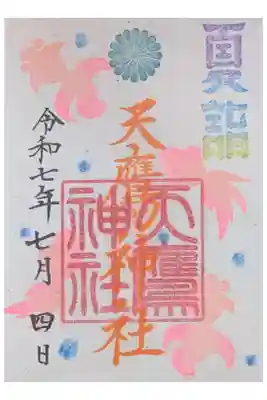 天鷹神社
天鷹
神社
令和七年 七月 四日